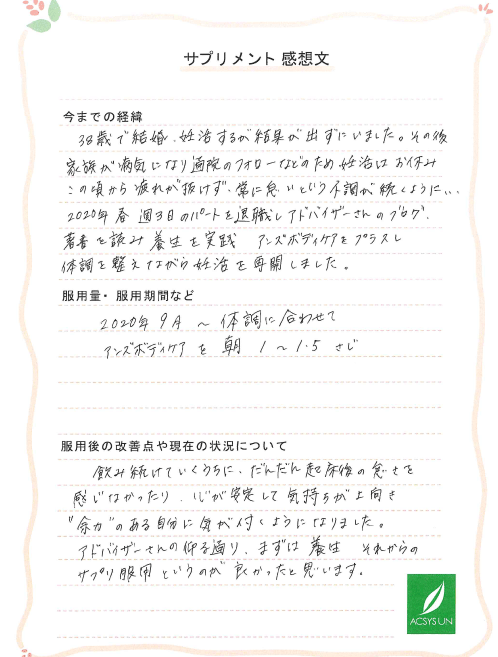 サプリメント 感想文
今までの経緯
38歳で結婚、妊活するが結果が出ずにいました。その後
家族が病気になり通院のフォローなどのため妊活はお休み
この頃から疲れが抜けず、常に怠いという不調が続くように…
2020年 春 週3日のパートを退職しアドバイザーさんのブログ、
著書を読み養生を実践 アンズボディケアをプラスし
体調を整えながら妊活を再開しました。
服用量・服用期間など
2020年 9月 ～ 体調に合わせて
アンズボディケア を 朝 1 ～ 1.5 さじ
服用後の改善点や現在の状況について
飲み続けていくうちに、だんだん起床後の怠さを
感じなかったり、心が安定して気持ちが上向き
"余力"のある自分に気が付くようになりました。
アドバイザーさんの仰る通り、まずは 養生 それからの
サプリ服用 というのが良かったと思います。
ACSYSUN